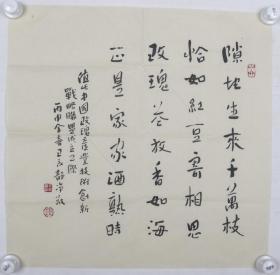 隙地生來千萬枝
恰如紅豆寄相思
玫瑰花放香如海
正是家家酒熟時
值此中國玫瑰產業技術創新
戰略聯盟成立之際
丙申金秋